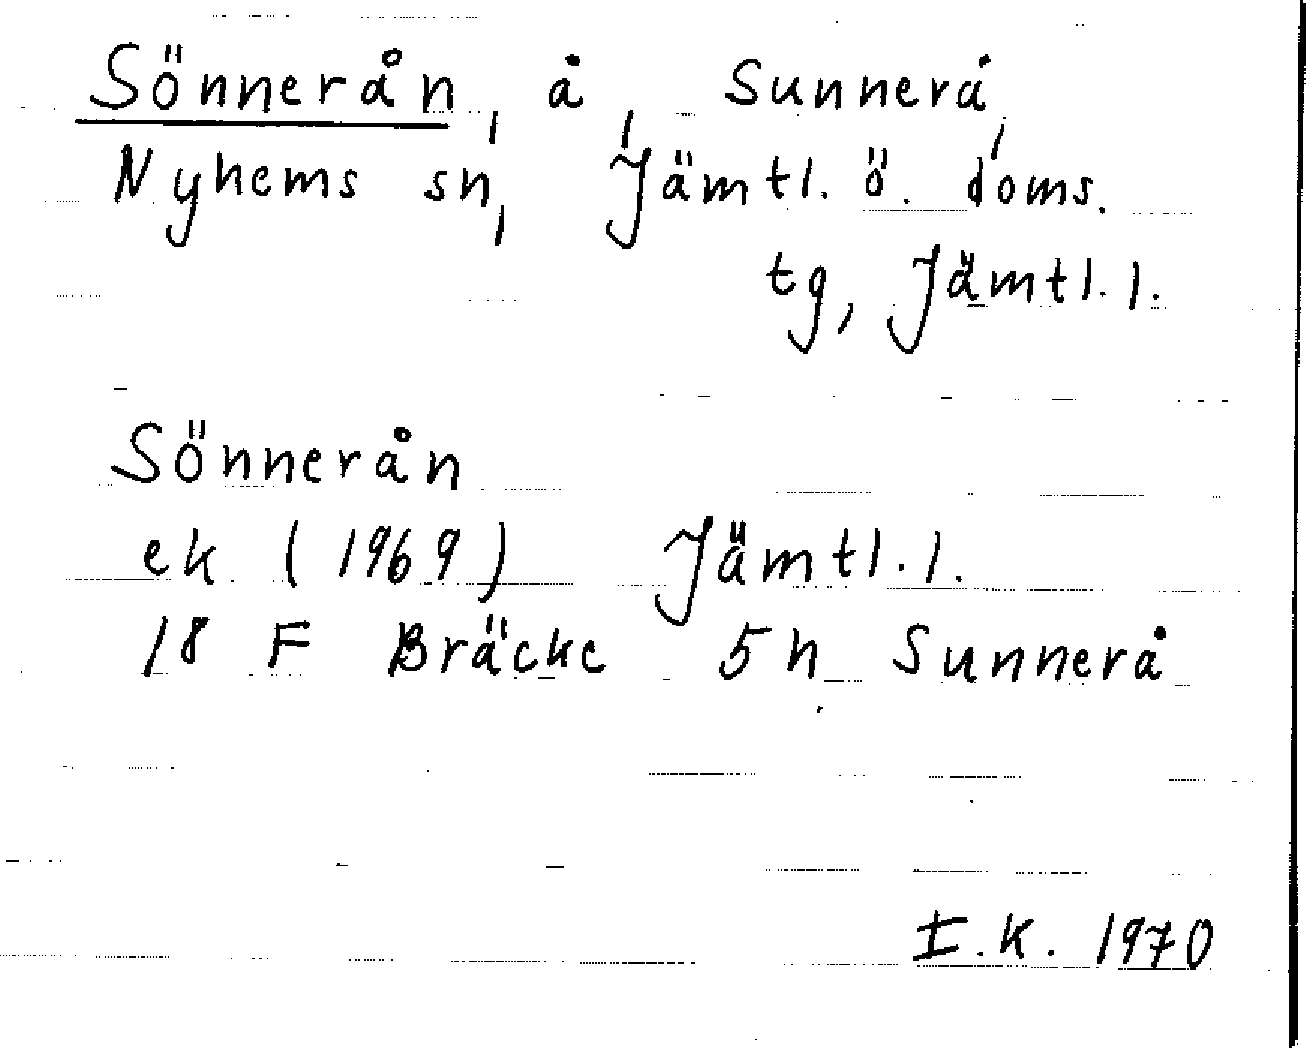 Sönnerån, å, Sunnerå,
Nyhems sn, Jämtl. ö. doms.
tg, Jämtl. l.
Sönnerån
ek (1969) Jämtl. l.
18 F Bräcke 5h Sunnerå
I.K. 1970